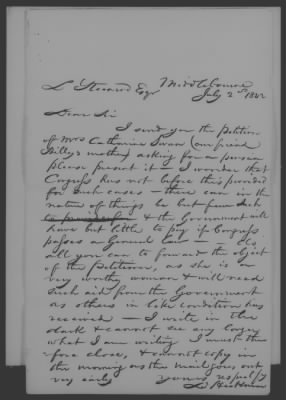 L Steward Esqr Middlebourne
July 2nd 1842
Dear Sir
I send you the Petition
of Mrs Catharine Swan (our friend
mother) asking for a pension
please present it — I wonder that
Congress has not before this provided
for such cases — there can in the
nature of things be but few such
& the Government will
have but little to pay if Congress
passes a General law — Do
all you can to forward the object
of the Petitioner, as she is a
very worthy woman & will need
such aid from the Government
as others in like condition has
received — I write in the
dark & cannot see any longer
what I am writing I must there
fore close, & cannot copy in
the morning as the mail goes out
very early yours respcfly